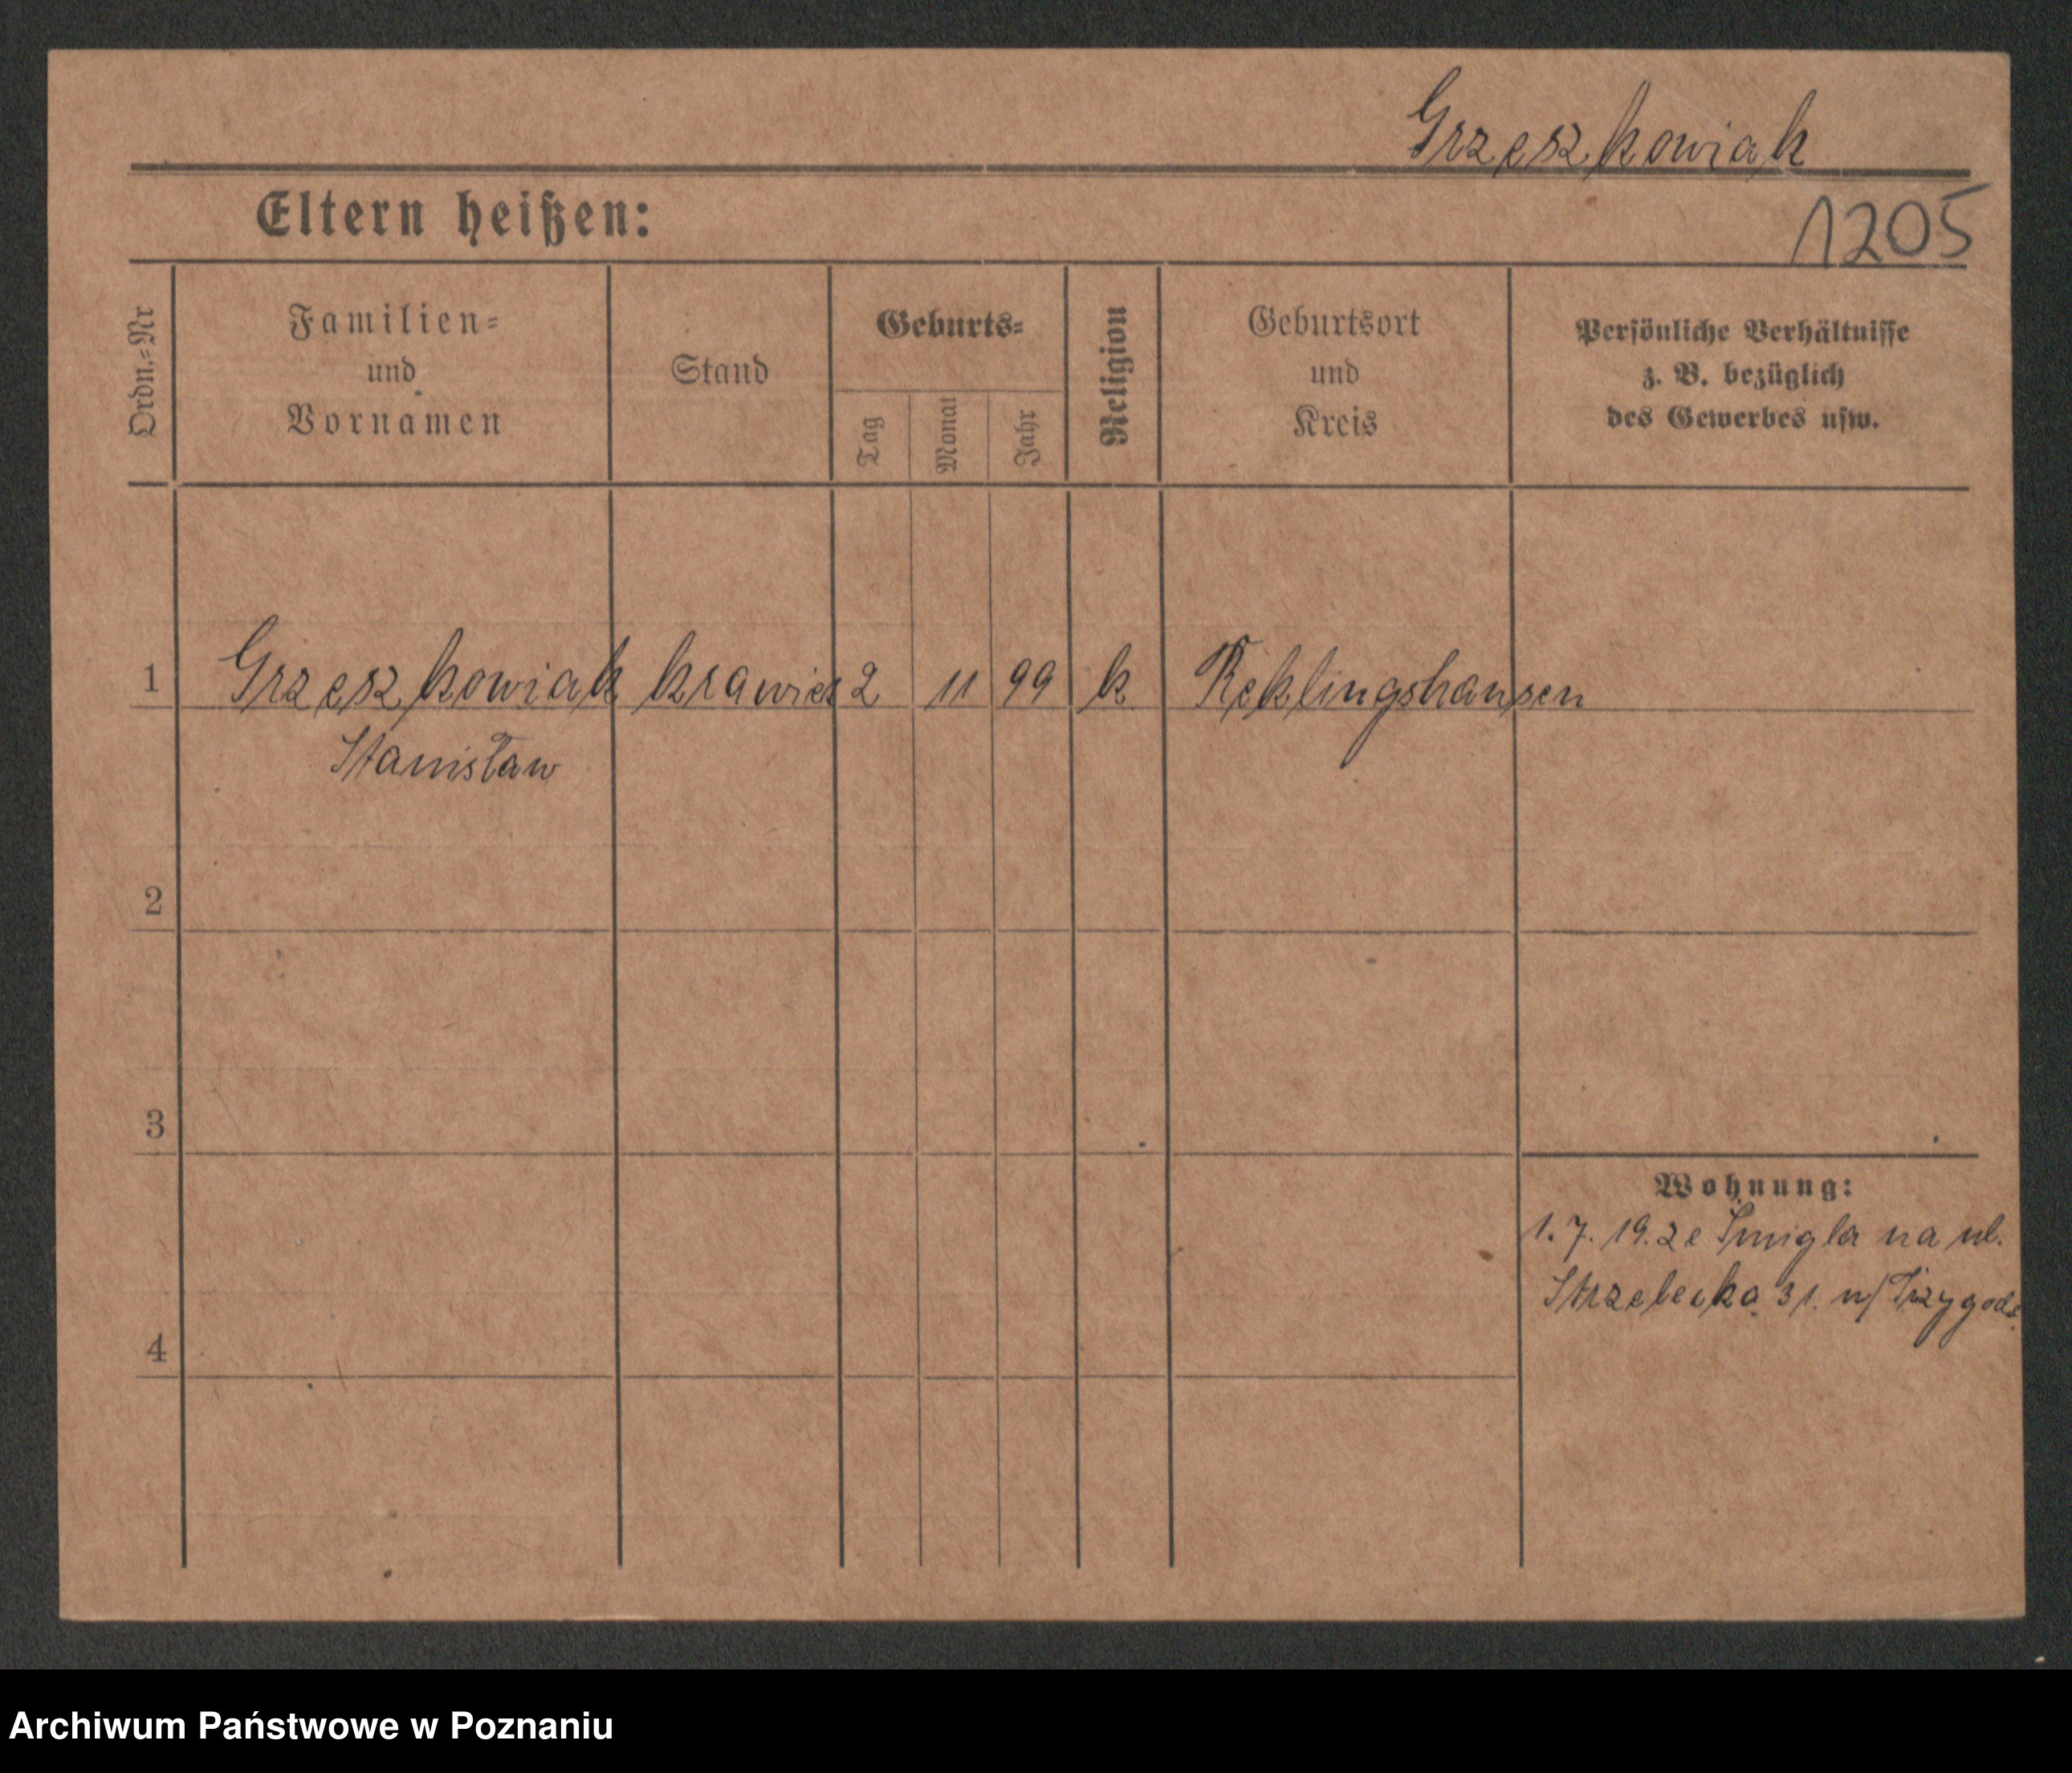 Grzeszkowiak
Eltern heißen:
1205
Ordn.=Nr
Familien=
und
Vornamen
Stand
Geburts=
Tag
Monat
Jahr
Religion
Geburtsort
und
Kreis
Persönliche Verhältnisse
z. B. bezüglich
des Gewerbes usw.
1 Grzeszkowiak krawiec 2 11 99 k Reklingshausen
Stanisław
2
3
Wohnung:
1. 7. 19. ze Śmigla na ul.
Strzelecka 31.
4
Archiwum Państwowe w Poznaniu